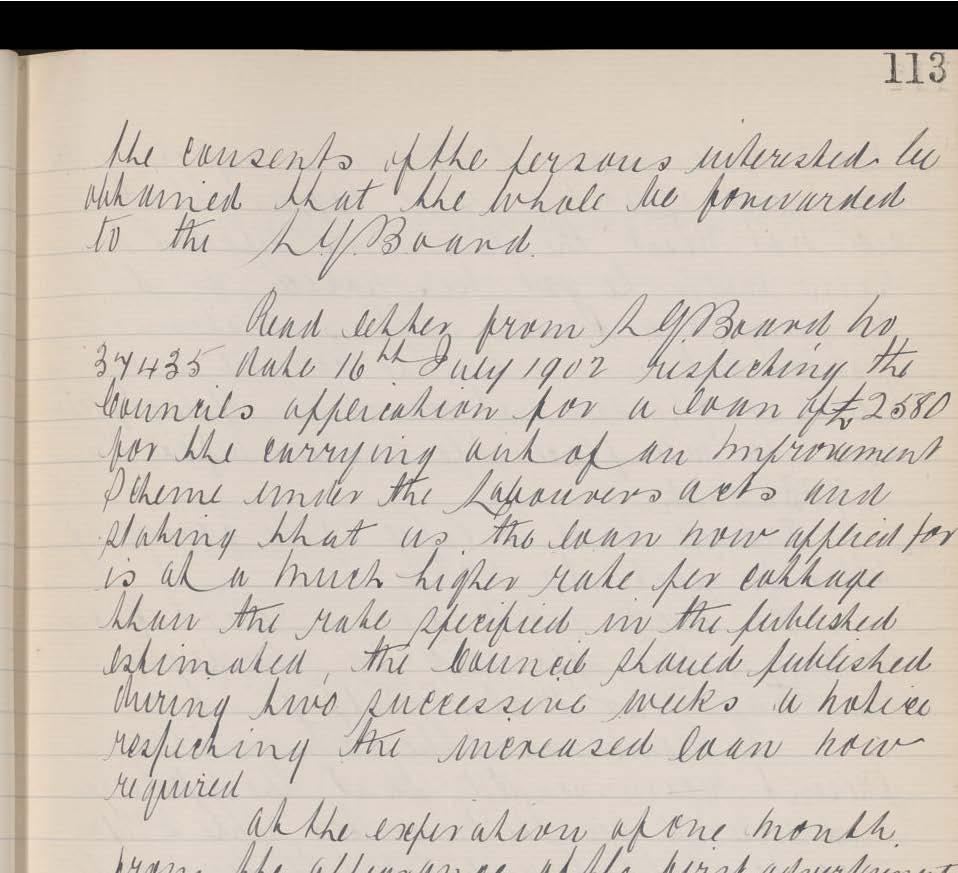 113
the consents of the persons interested be
obtained that the whole be forwarded
to the LGBoard.
Read letter from LGBoard No
37435 date 16th July 1902 respecting the
Councils application for a loan of £2580
for the carrying out of an Improvement
Scheme under the Labourers acts and
stating that as the loan now applied for
is at a much higher rate per cottage
than the rate specified in the published
estimated, the Council should published
during two successive weeks a notice
respecting the increased loan now
required
At the expiration of one month
from the appearance of the first advertisment